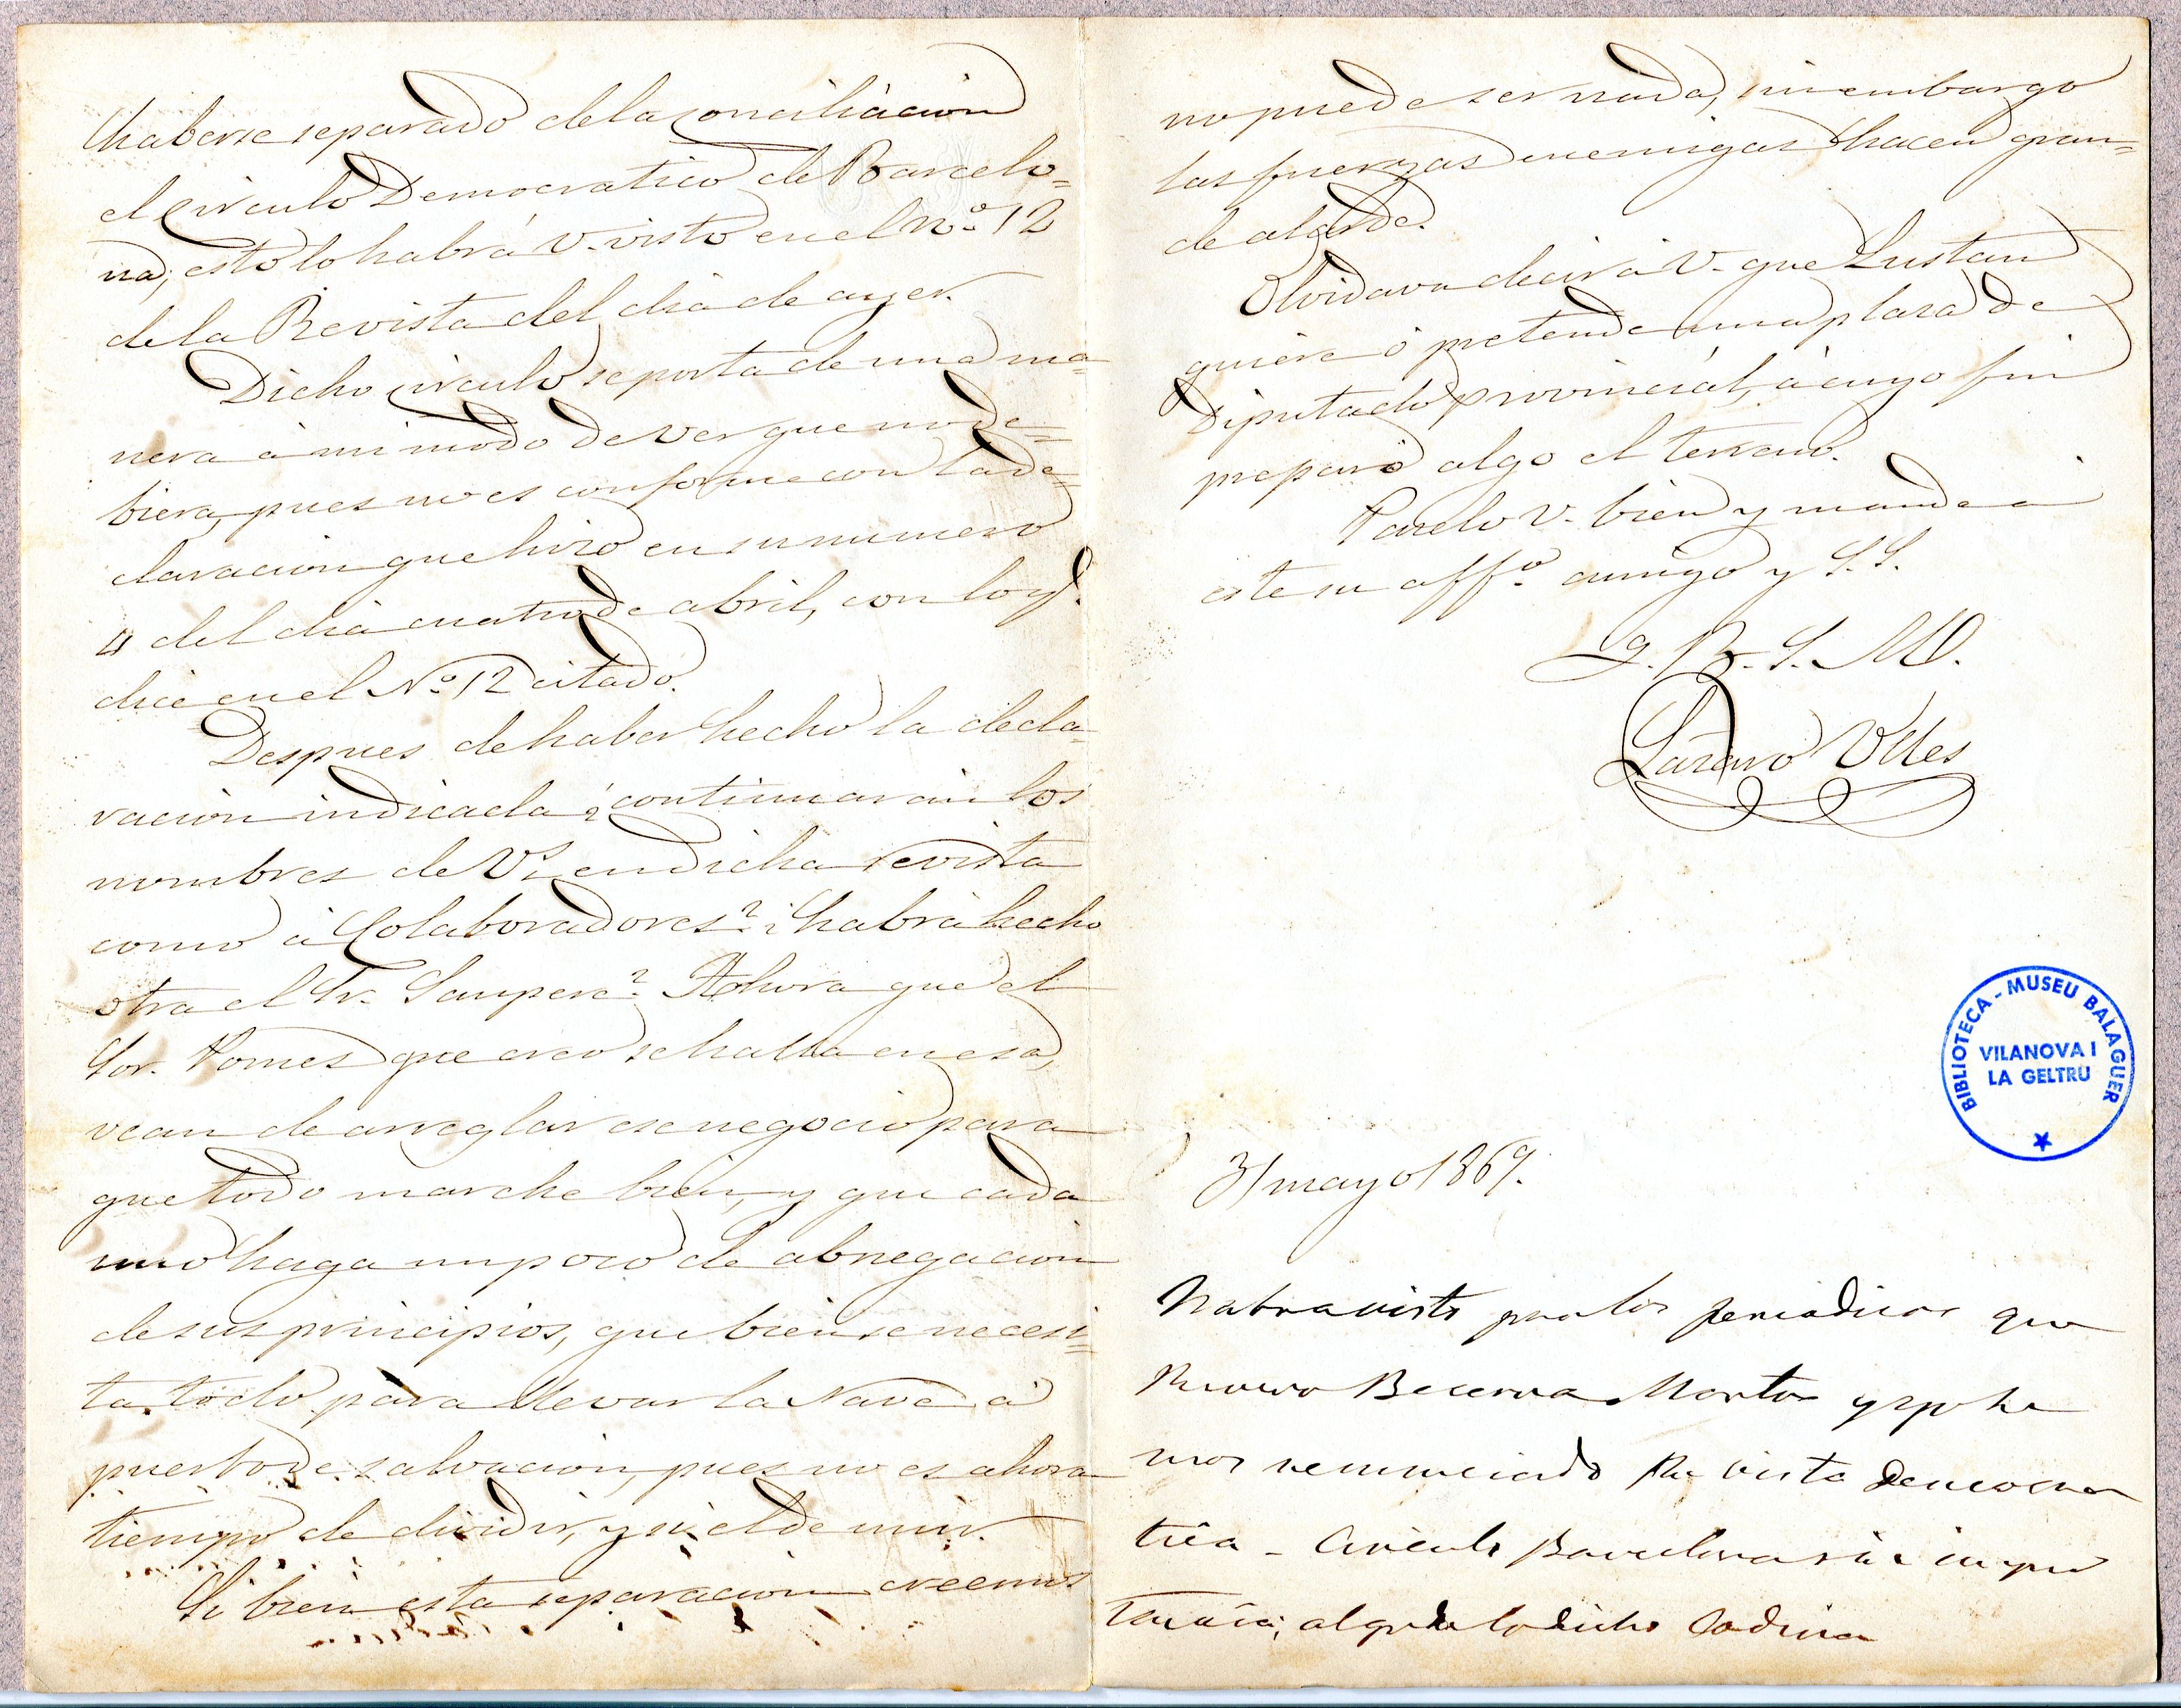 haberse separado de la conciliacion
el circulo Democratico de Barcelo=
na; esto lo habrá V. visto en el Nº 12
de la Revista del dia de ayer.
Dicho circulo se porta de una ma=
nera á mi modo de ver que no de=
biera, pues no es conforme con la de=
claracion que hizo en su numero
4 del dia cuatro de abril, con lo q.
dice en el Nº 12 citado.
Despues de haber hecho la decla=
racion indicada ¿continuarán los
nombres de Vs. en dicha revista
como á Colaboradores? ¿habrá hecho
otra el Sr. Sampere? Ahora que el
Sor. Tomes que creo se halla en esa,
vean de arreglar ese negocio para
que todo marche bien, y que cada
uno haga un poco de abnegacion
de sus principios, que bien se necesi=
ta todo para llevar la Nave á
puerto de salvacion, pues no es ahora
tiempo de dividir, y si el de unir.
Si bien esta separacion creemos
no puede ser nada, sin embargo
las fuerzas enemigas hacen gran=
de alarde.
Olvidava decir á V. que Lustau
quiere ó pretende una plasa de
Diputado provincial, á cuyo fin
preparó algo el terreno.
Paselo V. bien y mande á
este su affº amigo y S. S.
Q. B. S. M.
Lazaro Vlles
BIBLIOTECA - MUSEU BALAGUER
VILANOVA I
LA GELTRU
31 mayo 1869.
Habra visto por los periodicos que
Rivero Becerra Martos y yo he
mos renunciado Revista Democra
tica - Circulo Barcelona sin impor
tancia; algo de lo dicho